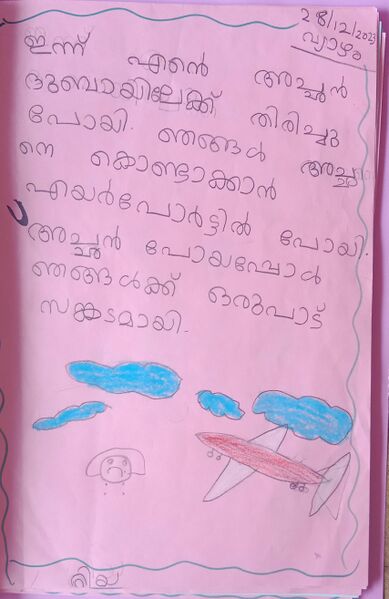 28/12/2023
വ്യാഴം
ഇന്ന് എന്റെ അച്ഛൻ
ദുബായിലേക്ക് തിരിച്ചു
പോയി. ഞങ്ങൾ അച്ഛ
നെ കൊണ്ടാക്കാൻ
എയർപോർട്ടിൽ പോയി.
അച്ഛൻ പോയപ്പോൾ
ഞങ്ങൾക്ക് ഒരുപാട്
സങ്കടമായി.